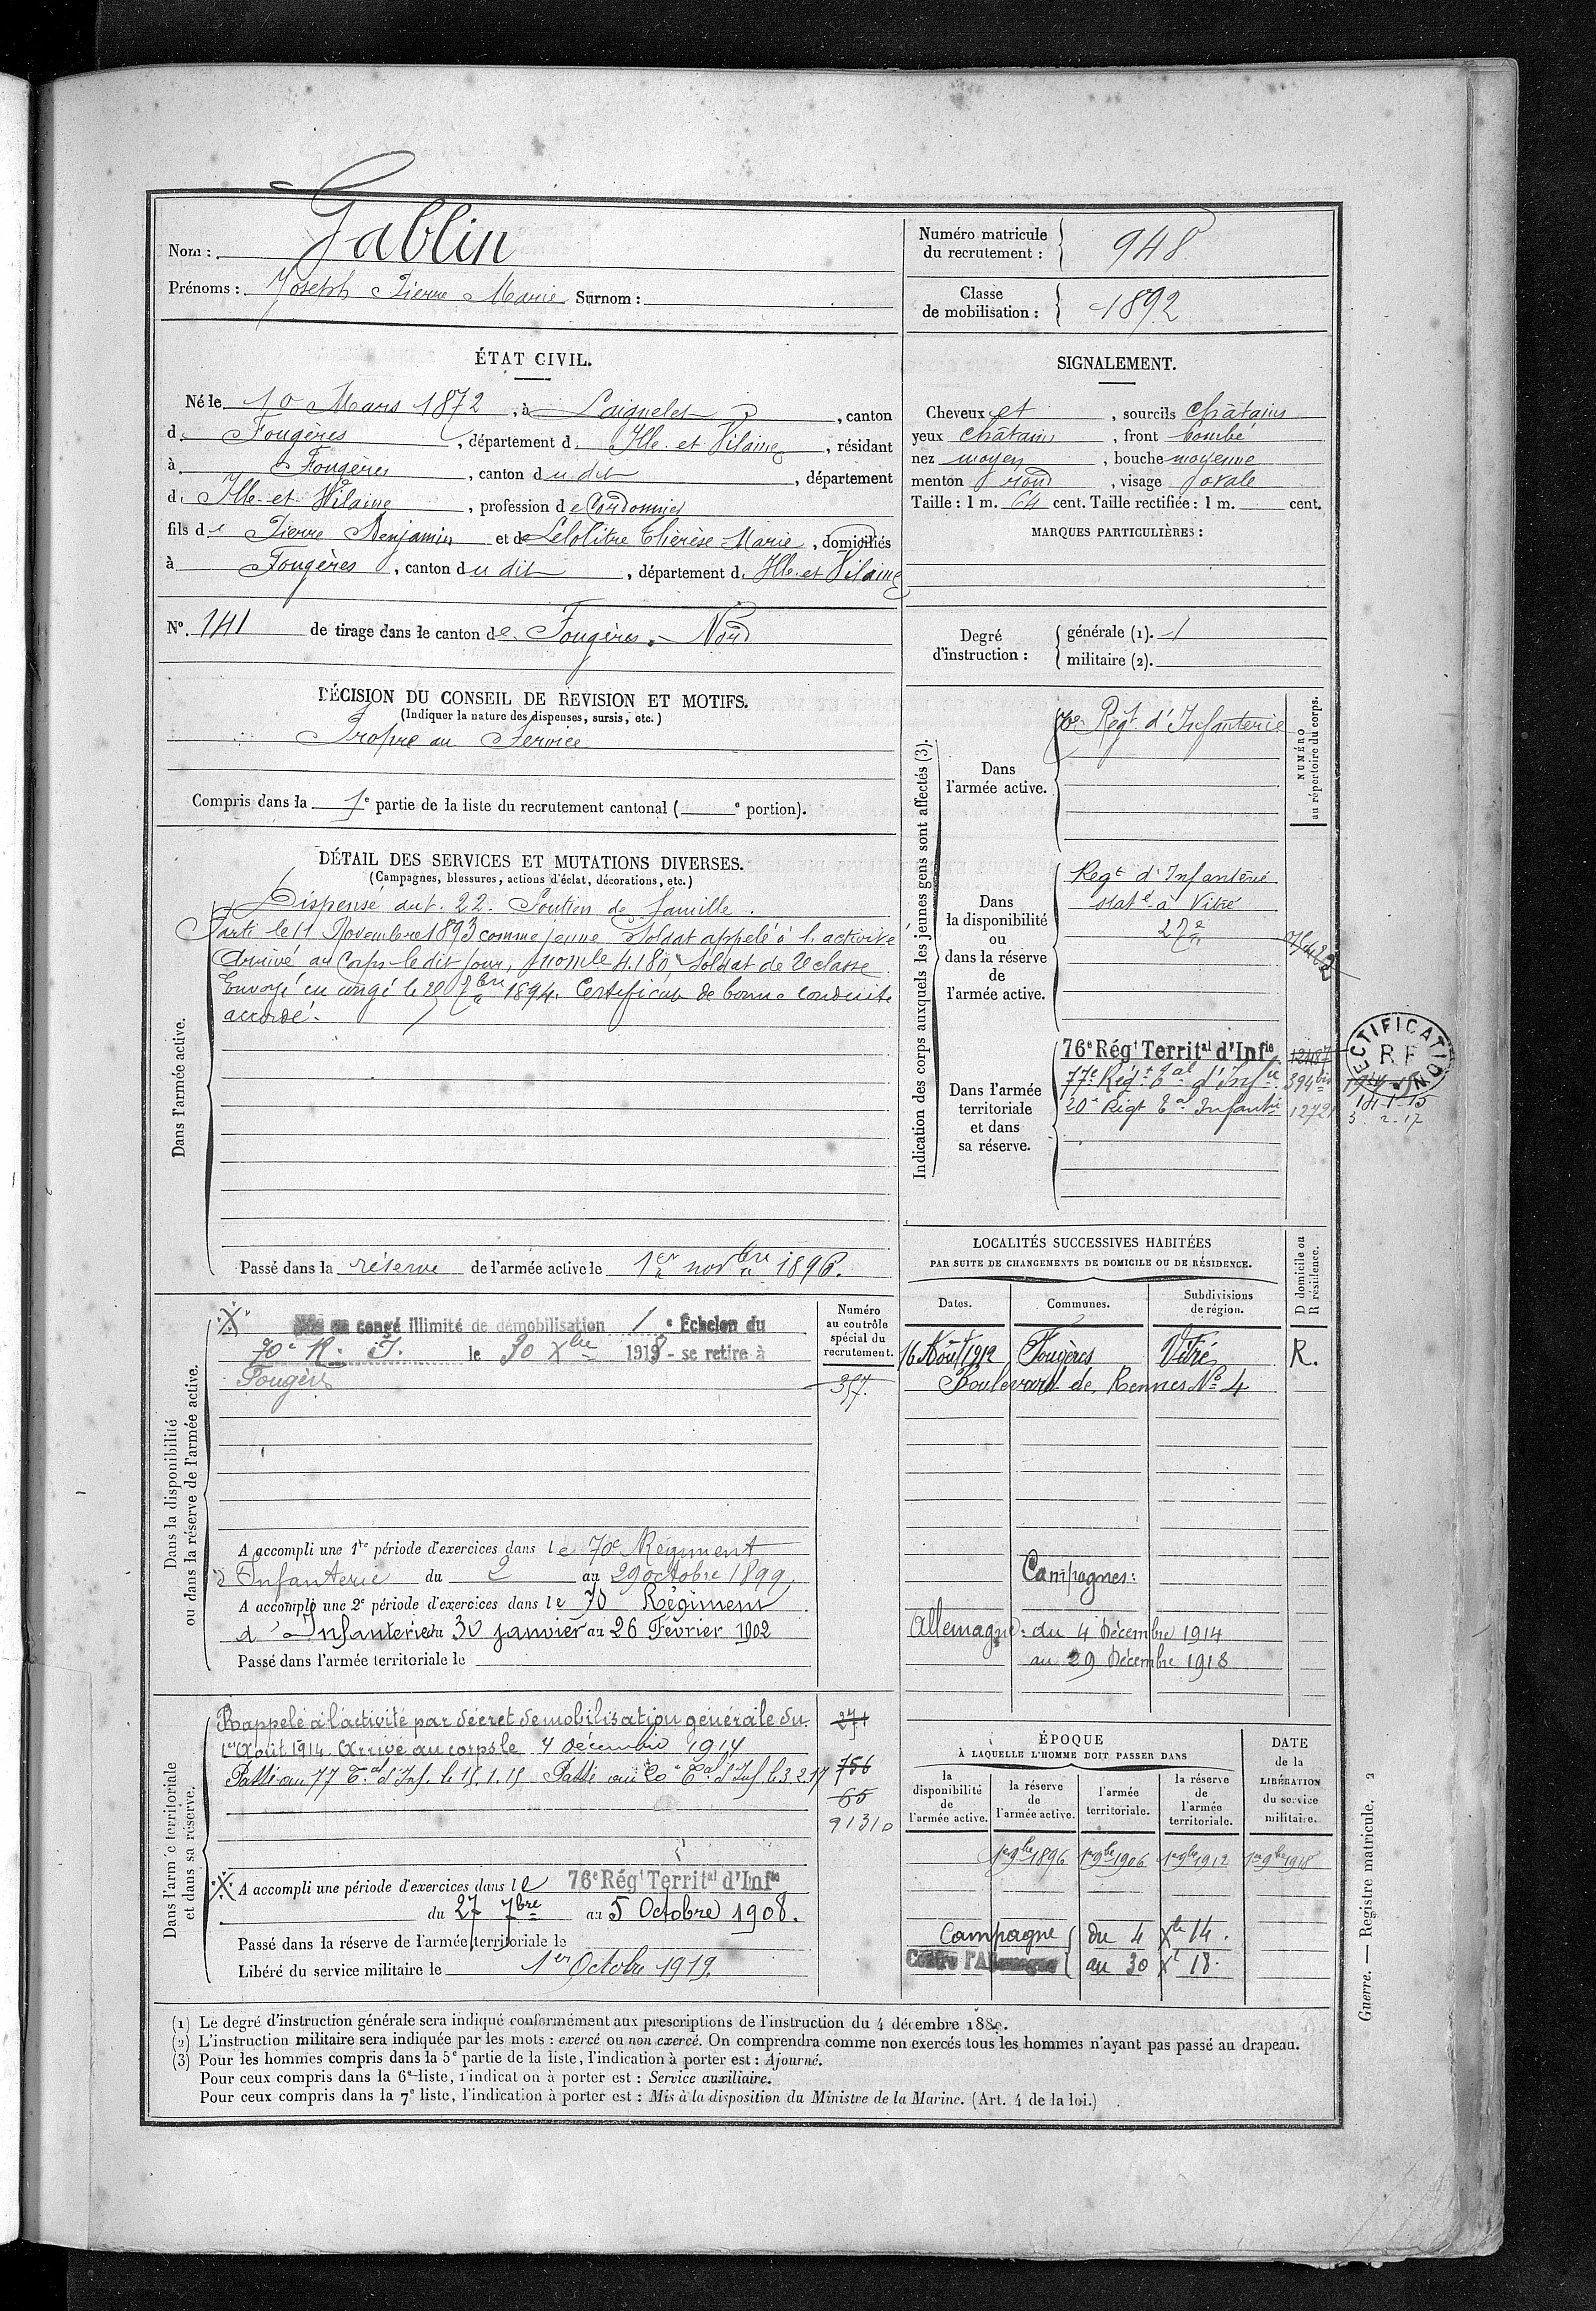 Nom : Gablin
Prénoms : Joseph Pierre Marie Surnom :
ÉTAT CIVIL.
Né le 10 Mars 1872, à Laignelet, canton
de Fougères, département d Ille et Vilaine, résidant
à Fougères, canton du dit, département
d Ille-et-Vilaine, profession de Cordonnier
fils de Pierre Benjamin et de Thérèse Marie, domiciliés
à Fougères, canton du dit, département d. Ille et Vilaine
N°. 141 de tirage dans le canton de Fougères - Nord
DÉCISION DU CONSEIL DE REVISION ET MOTIFS.
(Indiquer la nature des dispenses, sursis, etc.)
Propre au Service
Compris dans la 1e partie de la liste du recrutement cantonal ( e portion).
DÉTAIL DES SERVICES ET MUTATIONS DIVERSES.
(Campagnes, blessures, actions d'éclat, décorations, etc.)
Dans l'armée active.
Dispensé art. 22. Soutien de famille.
Parti le 11 Novembre 1893 comme jeune soldat appelé à l'activité
Arrivé au Corps le dit jour, 4.180, Soldat de 2e classe.
Envoyé en congé le 1894. Certificat de bonne conduite
accordé.
Passé dans la réserve de l'armée active le 1er novbre 1896.
Dans la disponibilité
ou dans la réserve de l'armée active.
Numéro
au contrôle
spécial du
recrutement.
congé illimité de démobilisation 1e Échelon du
70e R. I. le 30 Xbre 1918 - se retire à
Fougères
357.
A accompli une 1re période d'exercices dans le 70e Régiment
d'Infanterie du 2 au 29 octobre 1899.
A accompli une 2e période d'exercices dans le 70 Régiment
d'Infanterie du 30 janvier au 26 Février 1902
Passé dans l'armée territoriale le
Dans l'armée territoriale
et dans sa réserve.
Rappelé à l'activité par décret de mobilisation générale du 271
1er Août 1914. Arrivé au corps le 4 décembre 1914
Passé au 77 Tal d'Inf. le 15.1.15 Passé au 20e Tal d'Inf le 3.2.17 756
65
9131
A accompli une période d'exercices dans le 76e Régt Territal d'Infie
du 27 7bre au 5 Octobre 1908.
Passé dans la réserve de l'armée territoriale le
Libéré du service militaire le 1er Octobre 1919.
Numéro matricule
du recrutement : 948
Classe
de mobilisation : 1892
SIGNALEMENT.
Cheveux et, sourcils châtains
yeux châtains, front bombé
nez moyen, bouche moyenne
menton rond, visage ovale
Taille : 1 m. 64 cent. Taille rectifiée : 1 m. cent.
MARQUES PARTICULIÈRES :
Degré
d'instruction :
générale (1). 1
militaire (2).
Indication des corps auxquels les jeunes gens sont affectés (3).
NUMÉRO
au répertoire du corps.
Dans
l'armée active.
70e Régt d'Infanterie
Dans
la disponibilité
ou
dans la réserve
de
l'armée active.
Regt d'Infanterie
staté à Vitré
Dans l'armée
territoriale
et dans
sa réserve.
76e Régt Territal d'Infie 12487
77e Régt Tal d'Infie 394bis
20e Régt Tal Infantie 1272
RECTIFICATION
RF
LOCALITÉS SUCCESSIVES HABITÉES
PAR SUITE DE CHANGEMENTS DE DOMICILE OU DE RÉSIDENCE.
D domicile ou
R résidence.
Dates.
Communes.
Subdivisions
de région.
16 Août 1912 Fougères Vitré R.
Boulevard de Rennes No 4
Campagnes :
Allemagne : du 4 Décembre 1914
au 29 Décembre 1918
ÉPOQUE
À LAQUELLE L'HOMME DOIT PASSER DANS
la
disponibilité
de
l'armée active.
la réserve
de
l'armée active.
l'armée
territoriale.
la réserve
de
l'armée
territoriale.
DATE
de la
LIBÉRATION
du service
militaire.
1er 9bre 1896 1er 9bre 1906 1er 9bre 1912 1er 9bre 1918
Campagne du 4 Xbre 14.
Contre l'Allemagne au 30 Xe 18.
(1) Le degré d'instruction générale sera indiqué conformément aux prescriptions de l'instruction du 4 décembre 1889.
(2) L'instruction militaire sera indiquée par les mots : exercé ou non exercé. On comprendra comme non exercés tous les hommes n'ayant pas passé au drapeau.
(3) Pour les hommes compris dans la 5e partie de la liste, l'indication à porter est : Ajourné.
Pour ceux compris dans la 6e liste, l'indication à porter est : Service auxiliaire.
Pour ceux compris dans la 7e liste, l'indication à porter est : Mis à la disposition du Ministre de la Marine. (Art. 4 de la loi.)
Guerre. — Registre matricule. 2